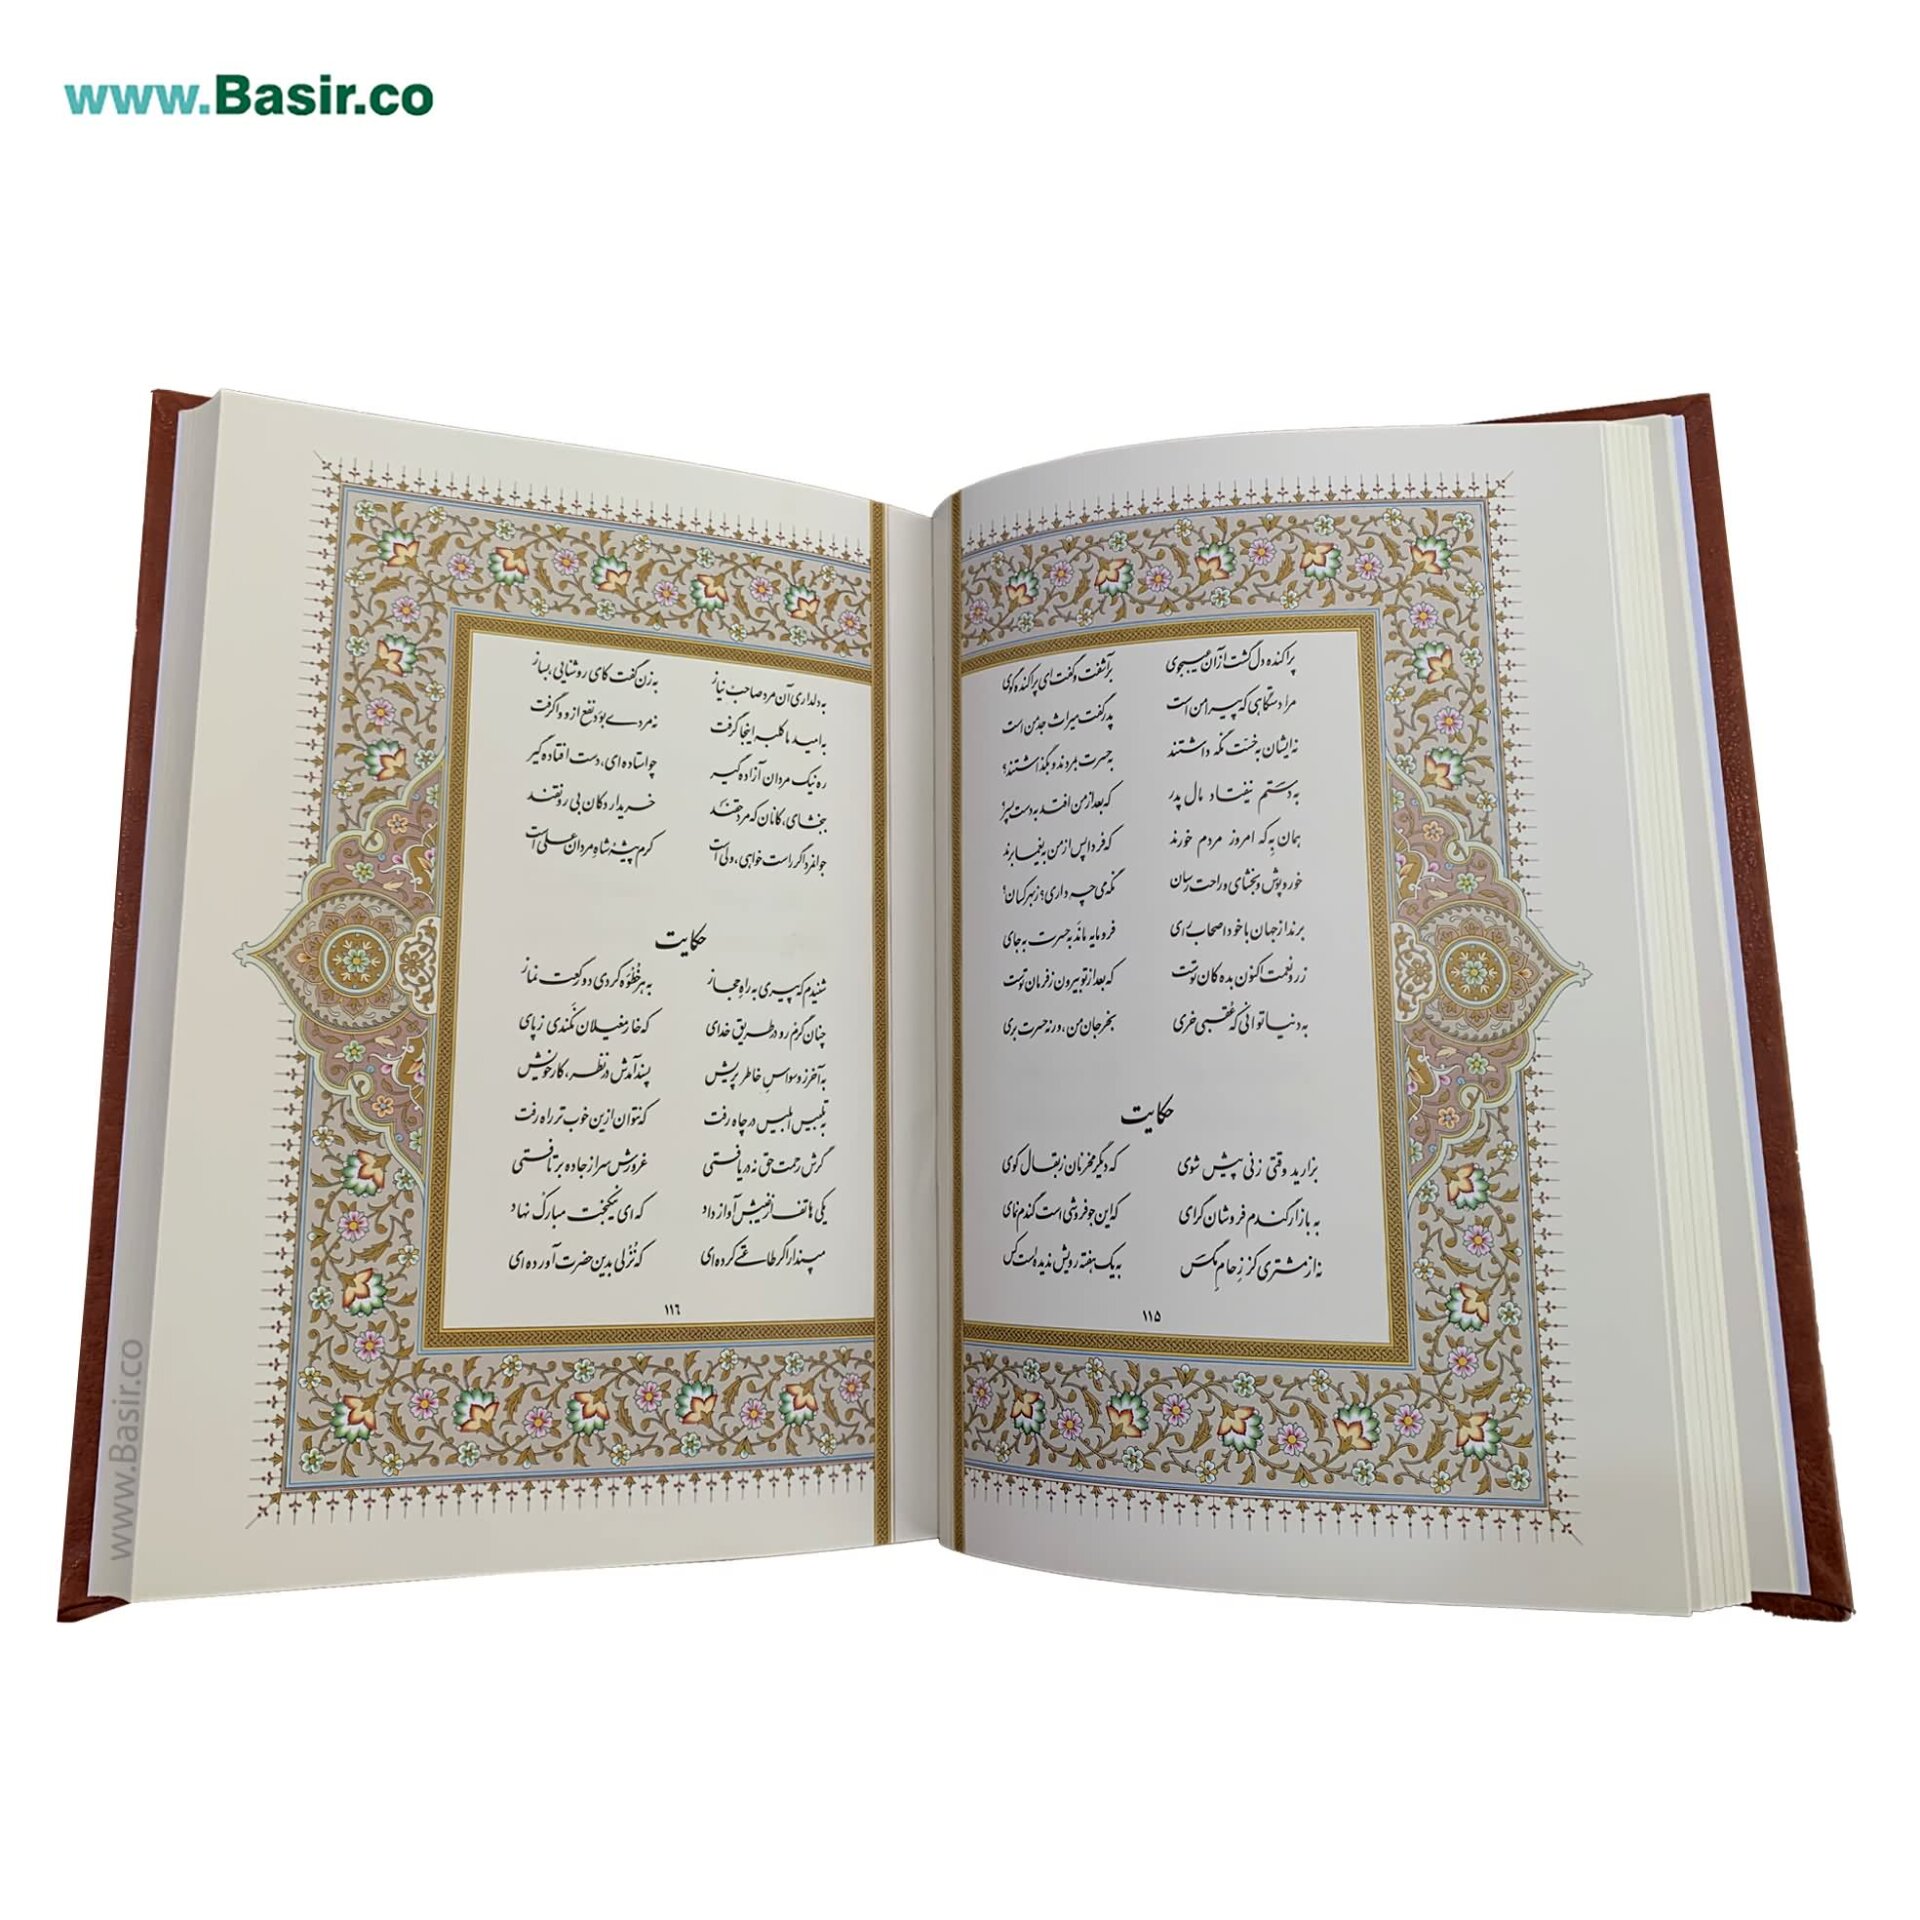 www.Basir.co
پراکنده دل گشت از آن عیبجوی برآشفت و گفت ای پراکنده گوی
مرا دستگاهی که پیرامن است پدر گفت میراث جد من است
نه ایشان به خست نگه داشتند به حسرت بمردند و بگذاشتند؟
به دستم نیفتاد مال پدر که بعد از من افتد به دست پسر؟
همان بِه که امروز مردم خورند که فردا پس از من به یغما برند
خور و پوش و بخشای و راحت رسان نگه می چه داری؟ ز بهر کسان؟
برند از جهان با خود اصحاب رای فرومایه ماند به حسرت به جای
زر و نعمت اکنون بده کان توست که بعد از تو بیرون ز فرمان توست
به دنیا توانی که عُقبی خری بخر جان من، ور نه حسرت بری
حکایت
بزارید وقتی زنی پیش شوی که دیگر مخر نان ز بقال کوی
به بازار گندم فروشان گرای که این جو فروشی است گندم نمای
نه از مشتری کز زِحامِ مگس به یک هفته رویش ندیده ست کس
۱۱۵
به دلداری آن مرد صاحب نیاز به زن گفت کای روشنایی، بساز
به امید ما کلبه اینجا گرفت نه مردی بود نفع از او واگرفت
ره نیک مردان آزاده گیر چو استاده ای، دست افتاده گیر
ببخشای، کانان که مرد حقند خریدار دکان بی رونقند
جوانمرد اگر راست خواهی، ولی است کرم پیشهٔ شاه مردان علی است
حکایت
شنیدم که پیری به راه حجاز به هر خُطْوَه کردی دو رکعت نماز
چنان گرم رو در طریق خدای که خار مغیلان نکَندی ز پای
به آخر ز وسواسِ خاطر پریش پسند آمدش در نظر، کار خویش
به تلبیس ابلیس در چاه رفت که نتوان از این خوب تر راه رفت
گرش رحمت حق نه دریافتی غرورش سر از جاده برتافتی
یکی هاتف از غیبش آواز داد که ای نیکبخت مبارک نهاد
مپندار اگر طاعتی کرده ای که نُزْلی بدین حضرت آورده ای
۱۱٦
www.Basir.co